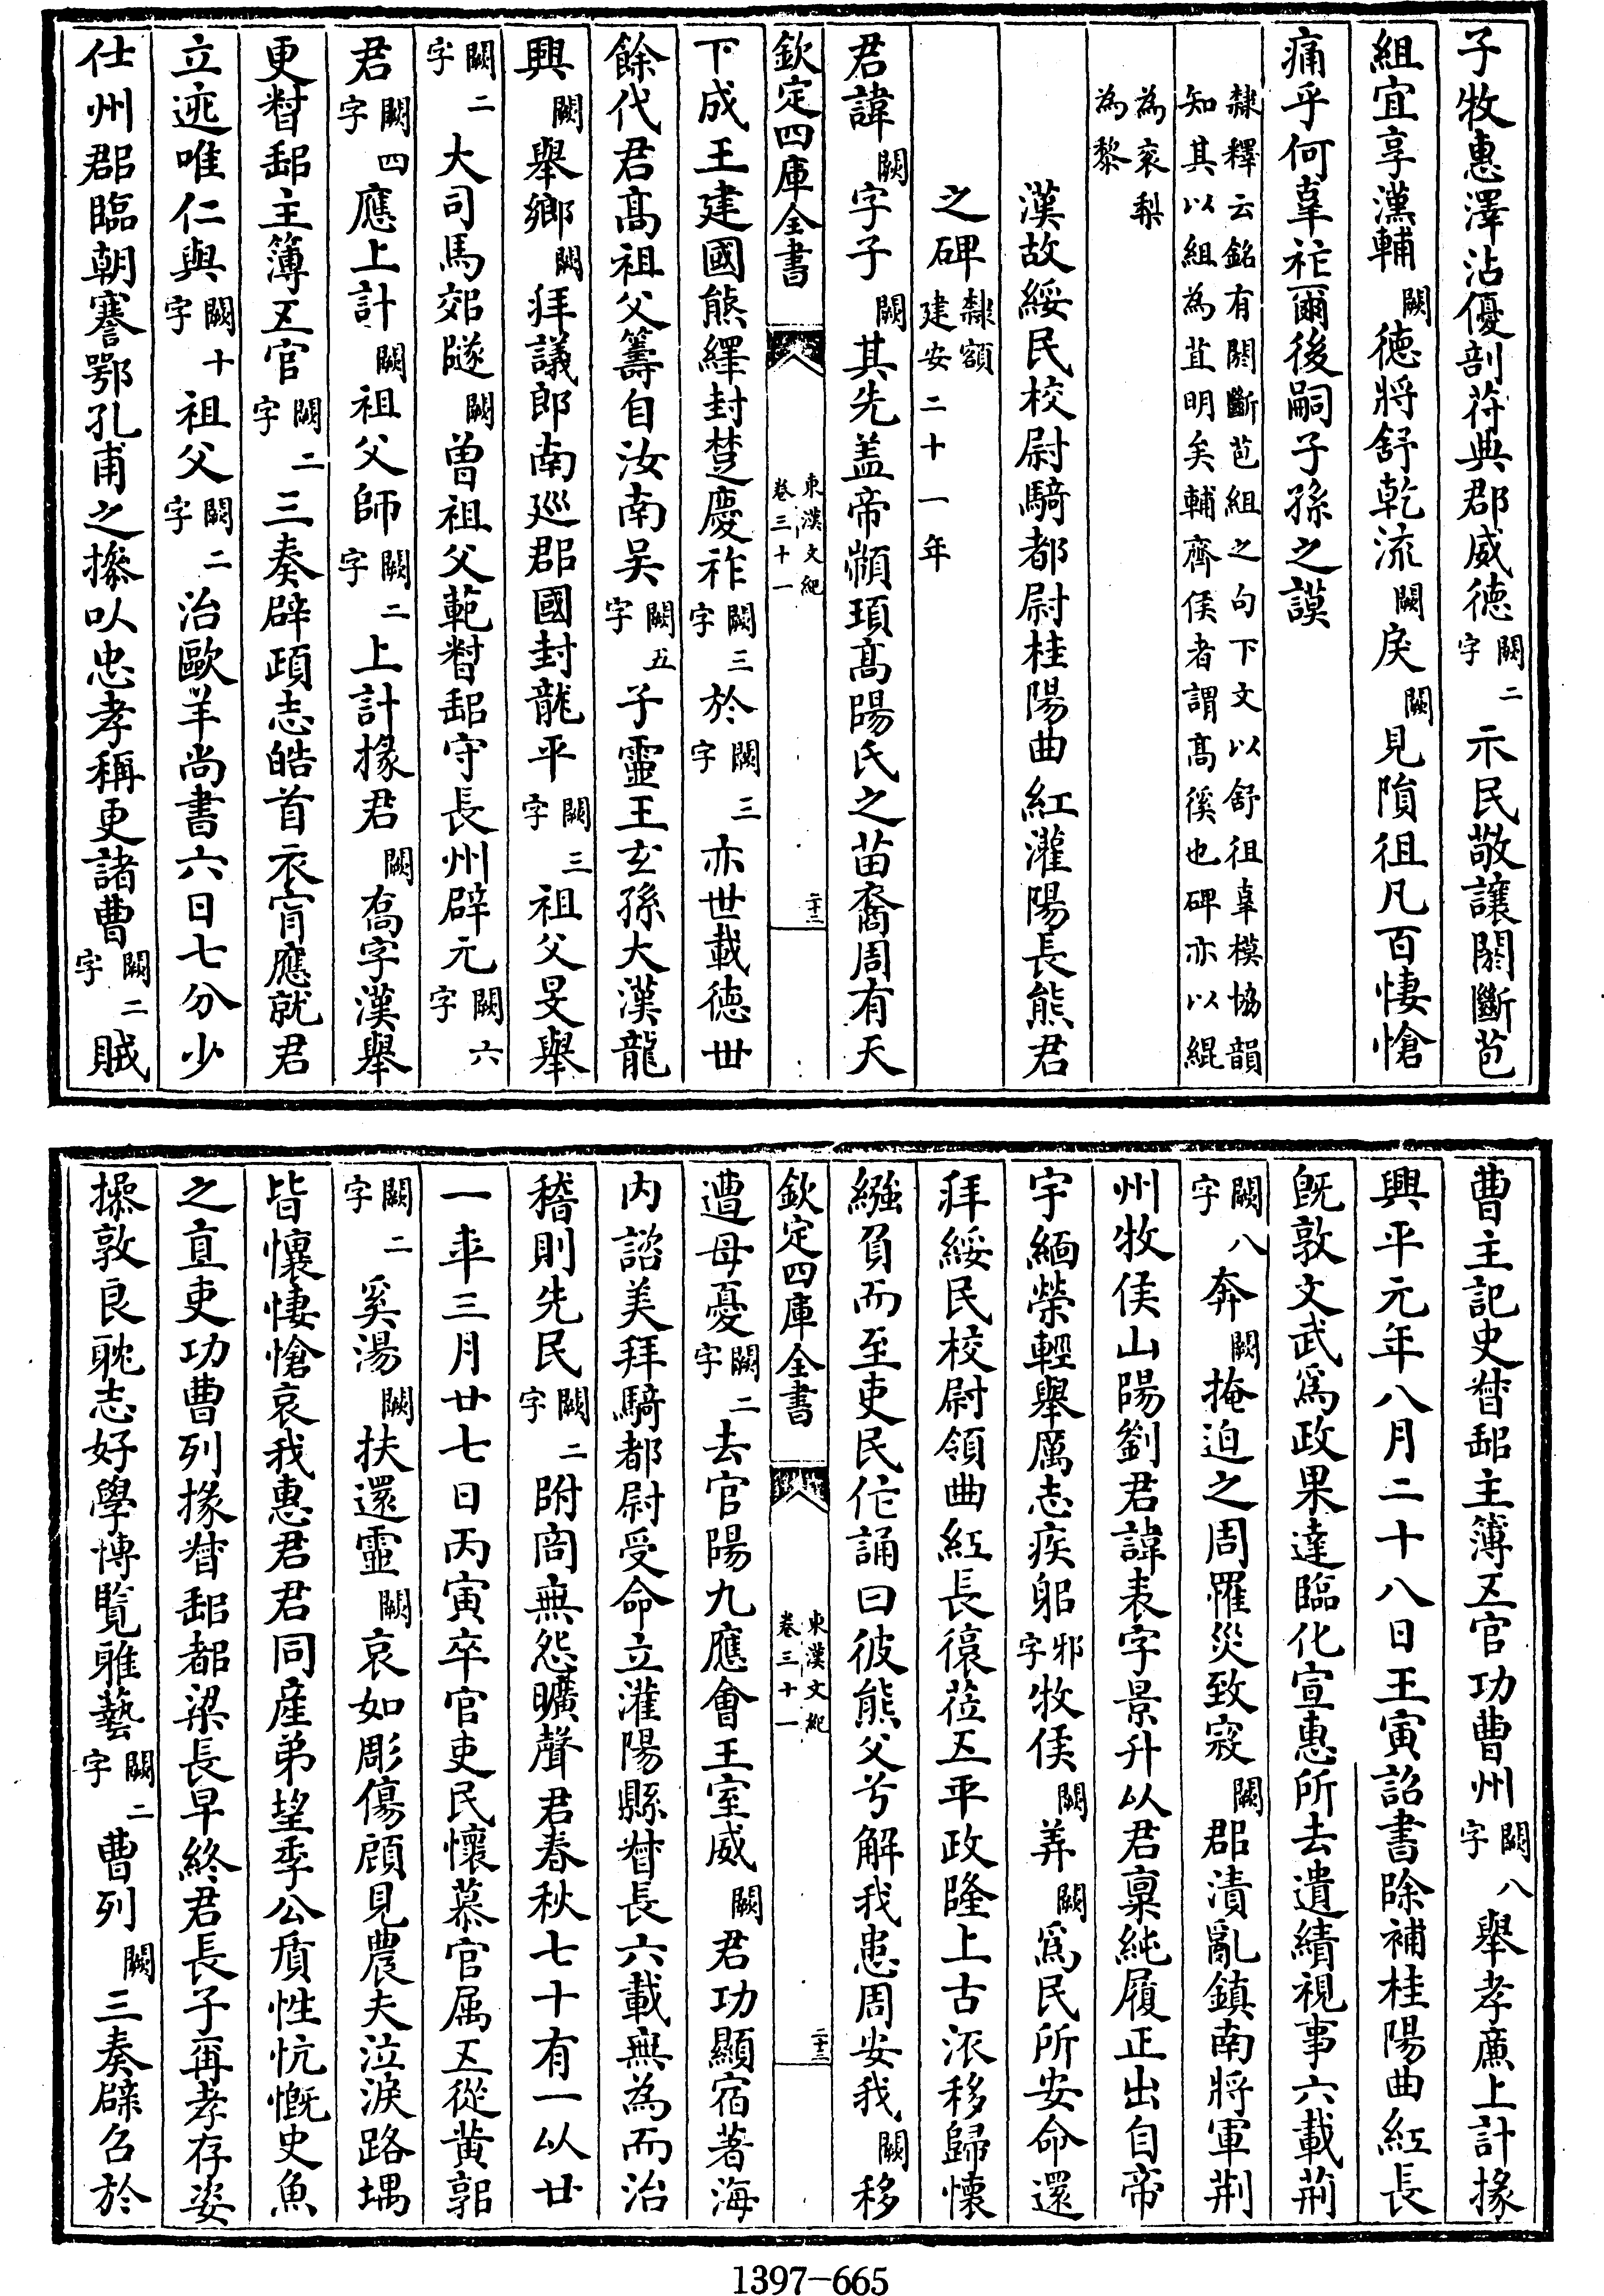 子牧惠澤沾優剖苻典郡威徳闕二字示民敬讓閉斷苞
組宜享漢輔闕徳將舒乾流闕戾闕見隕徂凡百悽愴
痛乎何辜祚爾後嗣子孫之謨
隸釋云銘有閉斷苞組之句下文以舒徂辜模協韻
知其以組為苴明矣輔齊侯者謂髙徯也碑亦以緄
為衮梨
為黎
漢故綏民校尉騎都尉桂陽曲紅灌陽長熊君
之碑隸額建安二十一年
君諱闕字子闕其先盖帝顓頊髙陽氏之苗裔周有天
欽定四庫全書 東漢文紀卷三十一 二十三
下成王建國熊繹封楚慶祚闕三字於闕三字亦世載徳丗
餘代君髙祖父籌自汝南吴闕五字子靈王玄孫大漢龍
興闕舉鄉闕拜議郎南廵郡國封龍平闕三字祖父旻舉
闕二字大司馬郊隧闕曽祖父範督郵守長州辟元闕六字
君闕四字應上計闕祖父師闕二字上計掾君闕喬字漢舉
更督郵主簿五官闕二字三奏辟頙志皓首衣宵應就君
立迹唯仁與闕十字祖父闕二字治歐羊尚書六日七分少
仕州郡臨朝謇鄂孔甫之摻以忠孝稱更諸曹闕二字賊
曹主記史督郵主簿五官功曹州闕八字舉孝亷上計掾
興平元年八月二十八日王寅詔書除補桂陽曲紅長
既敦文武為政果達臨化宣惠所去遺績視事六載荆
闕八字奔闕掩迫之周罹災致宼闕郡漬亂鎮南將軍荆
州牧侯山陽劉君諱表字景升以君稟純履正出自帝
宇緬榮輕舉厲志疾躳邪字牧侯闕弄闕為民所安命還
拜綏民校尉領曲紅長復莅五平政隆上古泒移歸懷
繈負而至吏民作誦曰彼熊父兮解我患周安我闕移
欽定四庫全書 東漢文紀卷三十一 二十三
遭母憂闕二字去官陽九應會王室威闕君功顯宿著海
内諮美拜騎都尉受命立灌陽縣督長六載無為而治
稽則先民闕二字附啇無怨曠聲君春秋七十有一以廿
一年三月廿七日丙寅卒官吏民懷慕官属五從黄郭
闕二字奚湯闕扶還靈闕哀如彫傷顧見農夫泣淚路堣
皆懷悽愴哀我惠君君同産弟望季公質性忼慨史魚
之直吏功曹列掾督郵都梁長早終君長子甫孝存姿
操敦良耽志好學博覧雅藝闕二字曹列闕三奏辟名於
1397–665